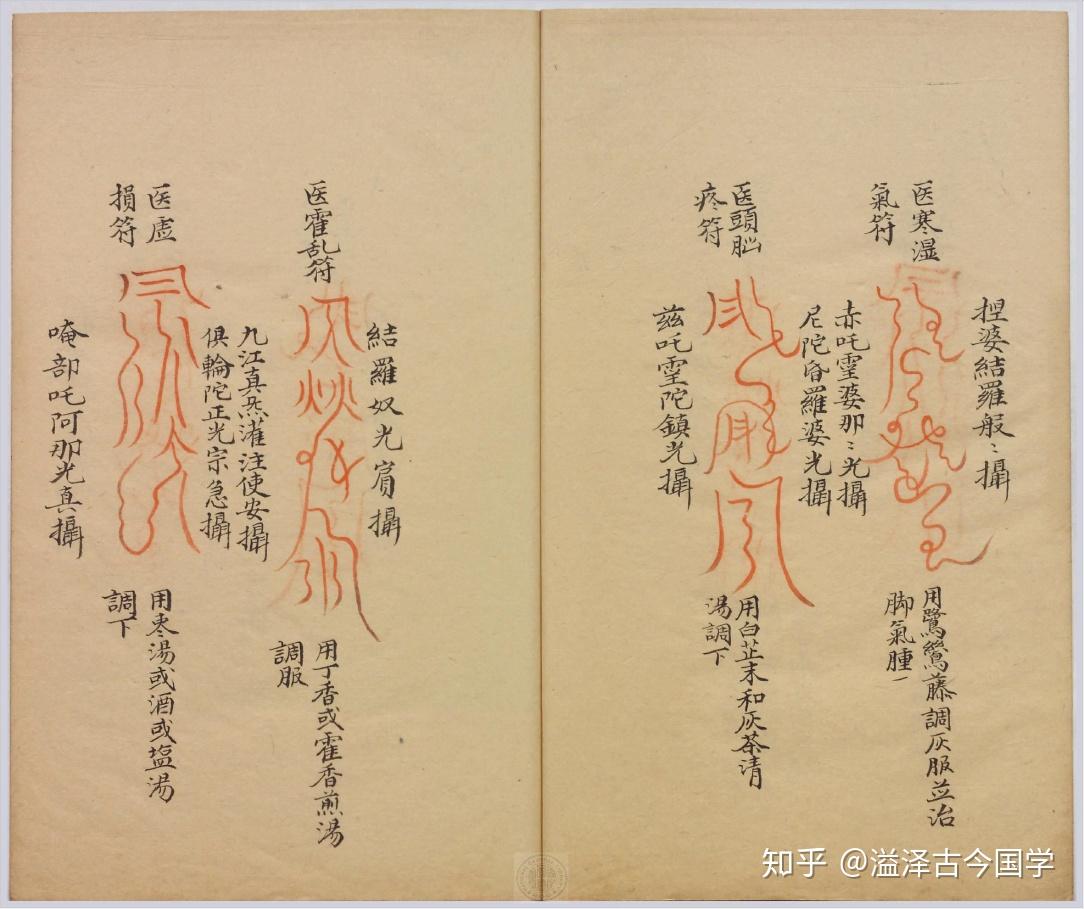 医寒湿
氣符
捏婆結羅般〻攝
用鷺鷥藤調灰服並治
脚氣腫一
医頭脳
疼符
赤吒霻婆那〻光攝
尼陀昏羅婆光攝
茲吒霻陀鎮光攝
用白芷末和灰茶清
湯調下
医霍乱符
結羅奴光肩攝
九江真炁灌注使安攝
俱輪陀正光宗急攝
用丁香或霍香煎湯
調服
医虛
損符
唵部吒阿那光真攝
用枣湯或酒或塩湯
調下
知乎 @溢泽古今国学